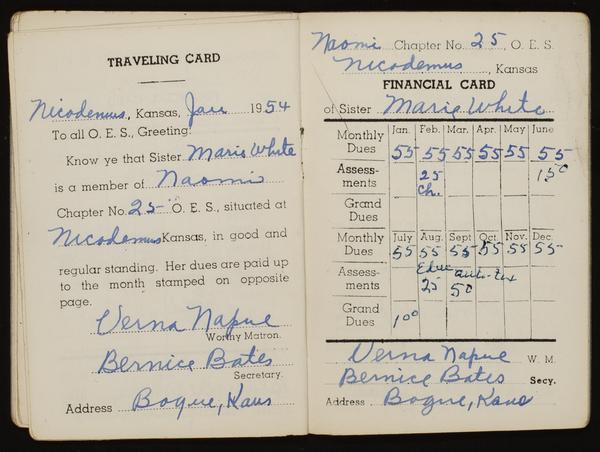 TRAVELING CARD
Nicodemus, Kansas, Jan 1954
To all O. E. S., Greeting:
Know ye that Sister Marie White
is a member of Naomi
Chapter No. 25 O. E. S., situated at
Nicodemus Kansas, in good and
regular standing. Her dues are paid up
to the month stamped on opposite
page.
Verna Napue
Worthy Matron.
Bernice Bates
Secretary.
Address Bogue, Kans
Naomi Chapter No. 25, O. E. S.
Nicodemus, Kansas
FINANCIAL CARD
of Sister Marie White
Monthly Dues Jan. Feb. Mar. Apr. May June
55 55 55 55 55 55
Assess-ments 25 Ch. 150
Grand Dues
Monthly Dues July Aug. Sept Oct. Nov. Dec.
55 55 55 55 55 55
Assess-ments Educ 25 50
Grand Dues 100
Verna Napue W. M.
Bernice Bates Secy.
Address Bogue, Kans